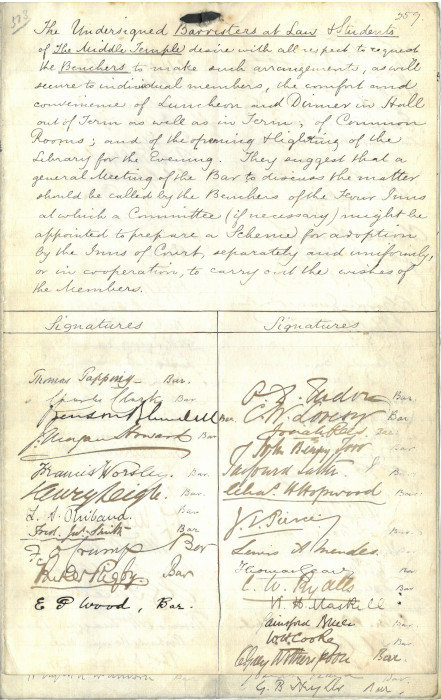 259.
The Undersigned Barristers at Law & Students
of The Middle Temple desire with all respect to request
the Benchers to make such arrangements, as will
secure to individual members, the comfort and
convenience of Luncheon and Dinner in Hall
out of Term as well as in Term; of Common
Rooms; and of the opening & lighting of the
Library for the Evening. They suggest that a
general Meeting of the Bar to discuss the matter
should be called by the Benchers of the Four Inns
at which a Committee (if necessary) might be
appointed to prepare a Scheme for adoption
by the Inns of Court, separately and uniformly,
or in cooperation, to carry out the wishes of
the Members.
Signatures
Thomas Tapping Bar.
Charles Clark Bar.
Benson Blundell Bar
J. Morgan Howard Bar
Francis Worsley Bar.
Henry Leigh. Bar.
Bar
Fred. Jas. Smith Bar
Bar
Rigby Bar
E P Wood, Bar.
Signatures
Bar.
Bar
Bar
Bar.
J. Pierce
Lewis A Mendes Bar.
C. W. Ryalls Bar
W. H. Maskell :
Gainsford Bruce Bar
W H Cooke Bar.
Bar.
G. B. Hughes Bar